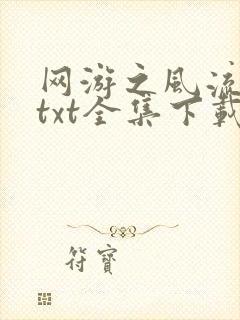 网游之风流
txt全集下载
符寶